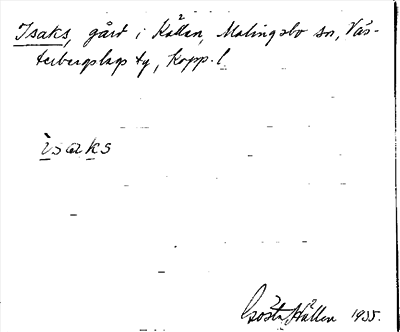 Isaks, gård i Kållan, Malingsbo sn, Väs-
terbergslags tg, Kopp. l.
isaks
Gösta Hållen 1935.